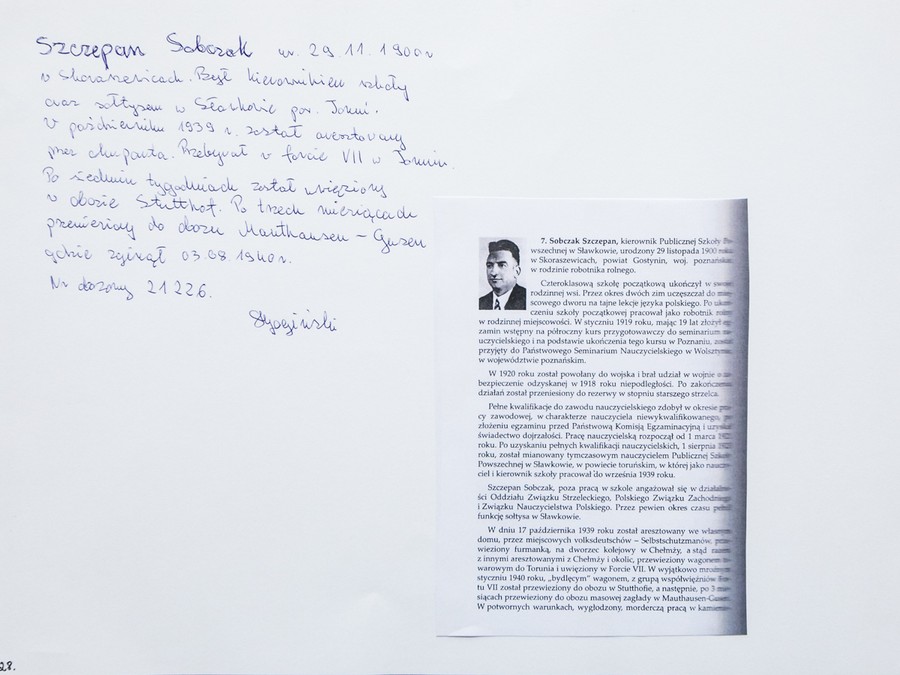 Szczepan Sobczak ur. 29.11.1900r
w Skoraszewicach. Był kierownikiem szkoły
oraz sołtysem w Sławkowie pow. Toruń.
W październiku 1939 r. został aresztowany
przez okupanta. Przebywał w forcie VII w Toruniu.
Po siedmiu tygodniach został uwięziony
w obozie Stutthof. Po trzech miesiącach
przeniesiony do obozu Mauthausen – Gusen
gdzie zginął 03.08 1940r.
Nr obozowy 21226.
7. Sobczak Szczepan, kierownik Publicznej Szkoły Po-
wszechnej w Sławkowie, urodzony 29 listopada 1900 roku
w Skoraszewicach, powiat Gostynin, woj. poznańskie
w rodzinie robotnika rolnego.
Czteroklasową szkołę początkową ukończył w swojej
rodzinnej wsi. Przez okres dwóch zim uczęszczał do miej-
scowego dworu na tajne lekcje języka polskiego. Po ukoń-
czeniu szkoły początkowej pracował jako robotnik rolny
w rodzinnej miejscowości. W styczniu 1919 roku, mając 19 lat złożył eg-
zamin wstępny na półroczny kurs przygotowawczy do seminarium na-
uczycielskiego i na podstawie ukończenia tego kursu w Poznaniu, został
przyjęty do Państwowego Seminarium Nauczycielskiego w Wolsztynie
w województwie poznańskim.
W 1920 roku został powołany do wojska i brał udział w wojnie o za-
bezpieczenie odzyskanej w 1918 roku niepodległości. Po zakończeniu
działań został przeniesiony do rezerwy w stopniu starszego strzelca.
Pełne kwalifikacje do zawodu nauczycielskiego zdobył w okresie pra-
cy zawodowej, w charakterze nauczyciela niewykwalifikowanego, po
złożeniu egzaminu przed Państwową Komisją Egzaminacyjną i uzyskał
świadectwo dojrzałości. Pracę nauczycielską rozpoczął od 1 marca
roku. Po uzyskaniu pełnych kwalifikacji nauczycielskich, 1 sierpnia
roku, został mianowany tymczasowym nauczycielem Publicznej Szkoły
Powszechnej w Sławkowie, w powiecie toruńskim, w której jako nauczy-
ciel i kierownik szkoły pracował do września 1939 roku.
Szczepan Sobczak, poza pracą w szkole angażował się w działalno-
ści Oddziału Związku Strzeleckiego, Polskiego Związku Zachodniego
i Związku Nauczycielstwa Polskiego. Przez pewien okres czasu pełnił
funkcję sołtysa w Sławkowie.
W dniu 17 października 1939 roku został aresztowany we własnym
domu, przez miejscowych volksdeutschów – Selbstschutzmanów, prze-
wieziony furmanką, na dworzec kolejowy w Chełmży, a stąd razem
z innymi aresztowanymi z Chełmży i okolic, przewieziony wagonem to-
warowym do Torunia i uwięziony w Forcie VII. W wyjątkowo mroźnym
styczniu 1940 roku, „bydlęcym” wagonem, z grupą współwięźniów For-
tu VII został przewieziony do obozu w Stutthofie, a następnie, po 3 mie-
siącach przewieziony do obozu masowej zagłady w Mauthausen-Gusen.
W potwornych warunkach, wygłodzony, morderczą pracą w kamienio-
28.